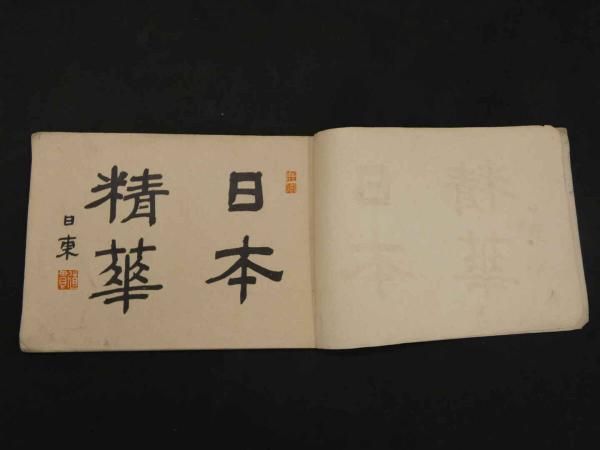 日本
精華
日東